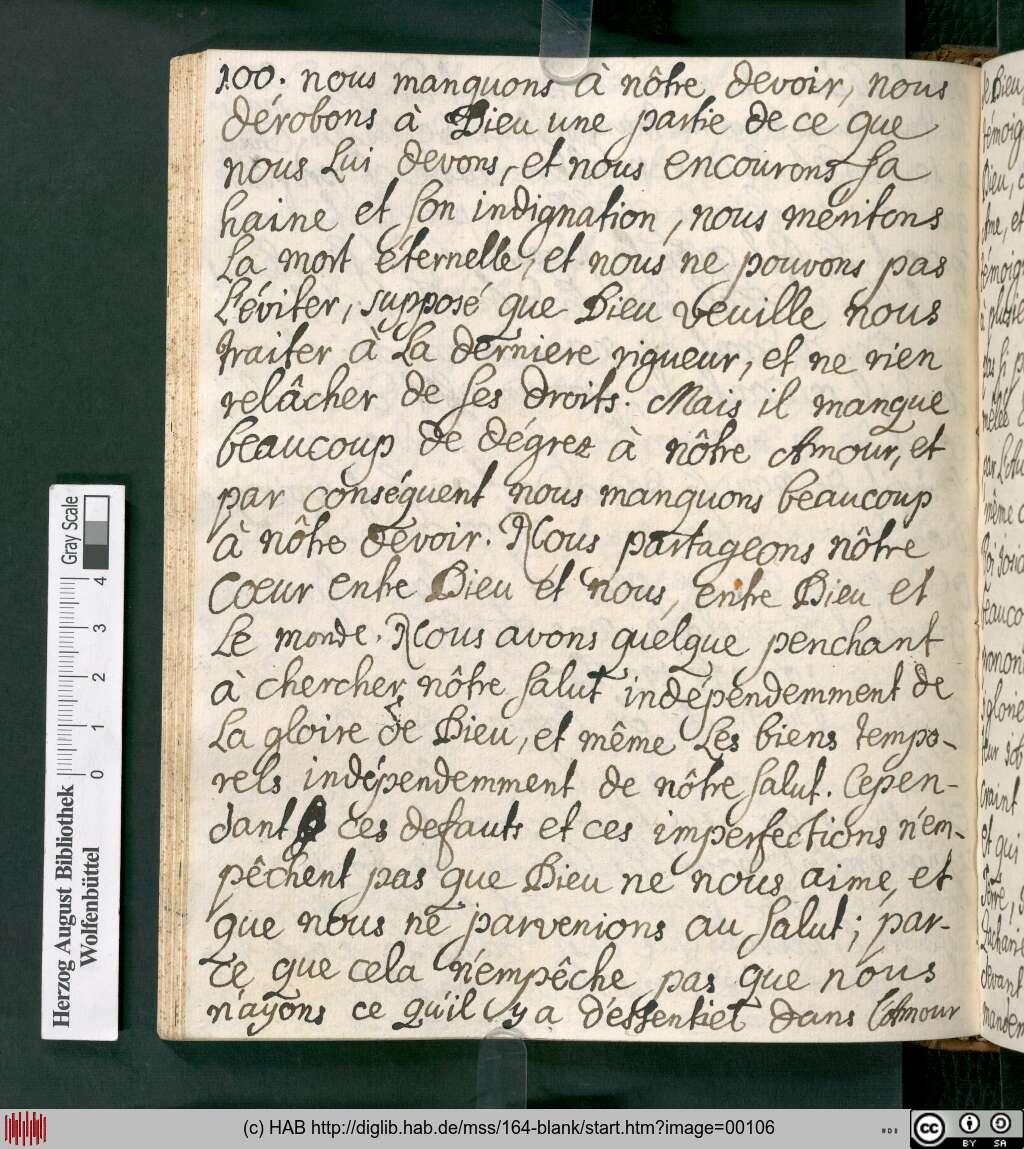 100. nous manquons à nôtre devoir, nous
dérobons à Dieu une partie de ce que
nous Lui devons, et nous encourons sa
haine et son indignation, nous meritons
La mort eternelle, et nous ne pouvons pas
L'éviter, supposé que Dieu veuille nous
traiter à La derniere rigueur, et ne rien
relâcher de ses droits. Mais il manque
beaucoup de dégrez à nôtre Amour, et
par conséquent nous manquons beaucoup
à nôtre devoir. Nous partageons nôtre
Cœur entre Dieu et nous, entre Dieu et
Le monde. Nous avons quelque penchant
à chercher nôtre salut indépendemment de
La gloire de Dieu, et même Les biens tempo-
rels indépendemment de nôtre salut. Cepen-
dant ces defauts et ces imperfections n'em-
pêchent pas que Dieu ne nous aime, et
que nous ne parvenions au salut; par-
ce que cela n'empêche pas que nous
n'ayons ce qu'il y a d'essentiel dans L'Amour
Gray Scale
4
3
2
1
0
Herzog August Bibliothek
Wolfenbüttel
(c) HAB http://diglib.hab.de/mss/164-blank/start.htm?image=00106
cc BY SA